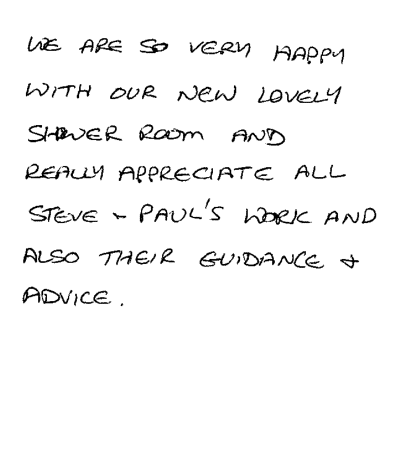 WE ARE SO VERY HAPPY
WITH OUR NEW LOVELY
SHOWER ROOM AND
REALLY APPRECIATE ALL
STEVE ~ PAUL'S WORK AND
ALSO THEIR GUIDANCE +
ADVICE.